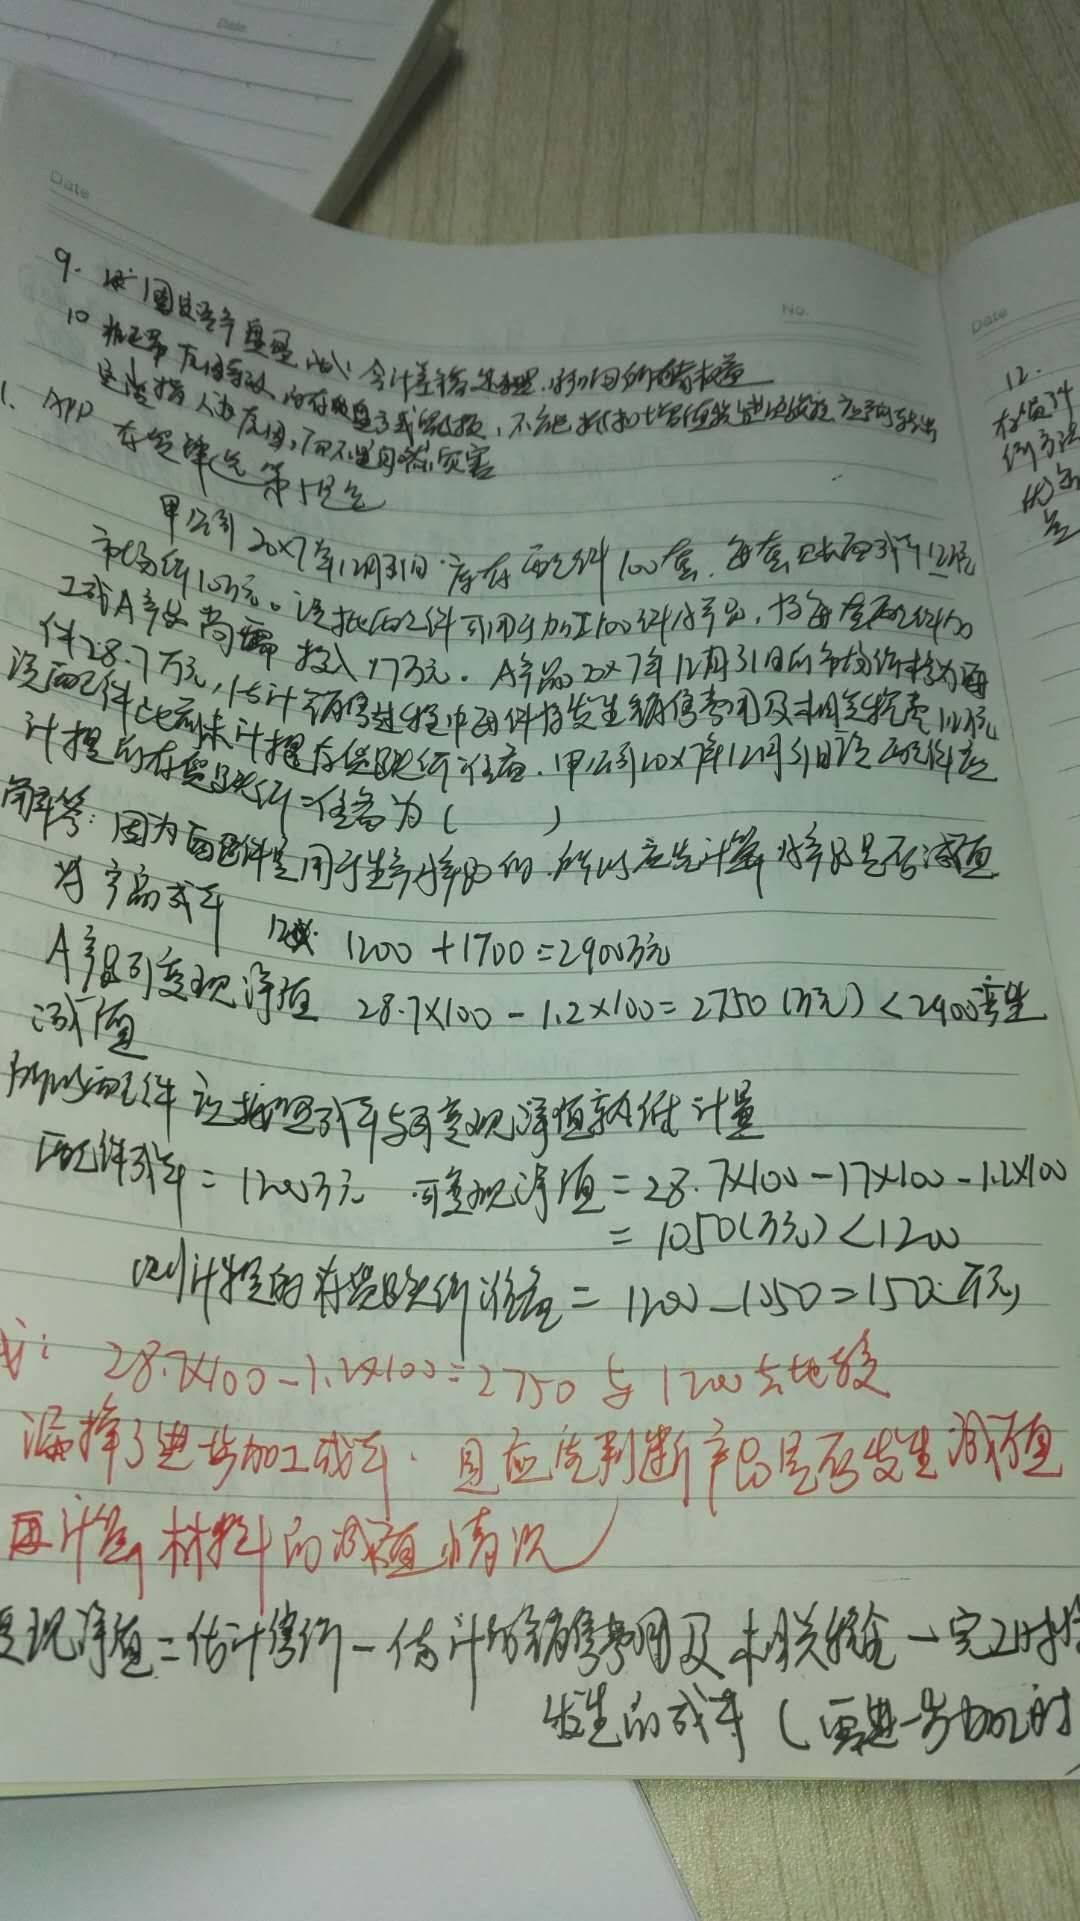 Date
Date
No.
Date
9. 固定资产盘盈 会计差错处理
10 非正常原因导致的存货盘亏或毁损,不能抵扣的增值税进项税额应予转出
是指人为原因,而不是自然灾害
1. APP 存货单选第5题
甲公司20×7年12月31日库存配件100套,每套账面成本12万元
市场价10万元。该批配件可用于加工100件A产品,将每套配件加
工成A产品尚需投入17万元。A产品20×7年12月31日的市场价格为每
件28.7万元,估计销售过程中每件将发生销售费用及相关税费1.2万元
该配件此前未计提存货跌价准备,甲公司20×7年12月31日该配件应
计提的存货跌价准备为( )
解答:因为配件是用于生产A产品的,所以应先计算A产品是否减值
A产品成本 1200+1700=2900万元
A产品可变现净值 28.7×100-1.2×100=2750(万元)<2900发生
减值
所以配件应按照成本与可变现净值孰低计量
配件成本=1200万元 可变现净值=28.7×100-17×100-1.2×100
=1050(万元)<1200
则计提的存货跌价准备=1200-1050=150(万元)
28.7×100-1.2×100=2750与1200去比较
漏掉了进一步加工成本.且应先判断产品是否发生减值
再计算材料的减值情况
变现净值=估计售价-估计的销售费用及相关税金-完工时
发生的成本(要进一步加工时
12.